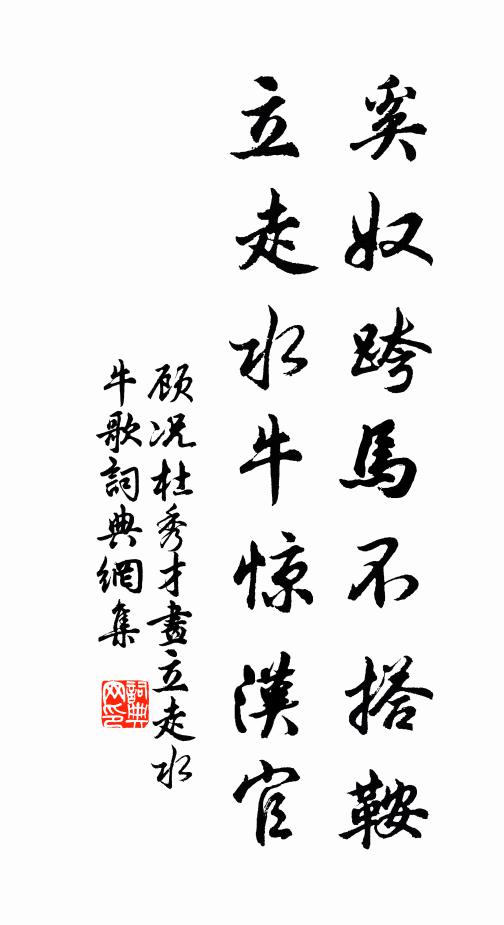 奚奴跨馬不搭鞍
立走水牛惊漢官
顾况杜秀才畫立走水
牛歌詞典網集
詞典
网印